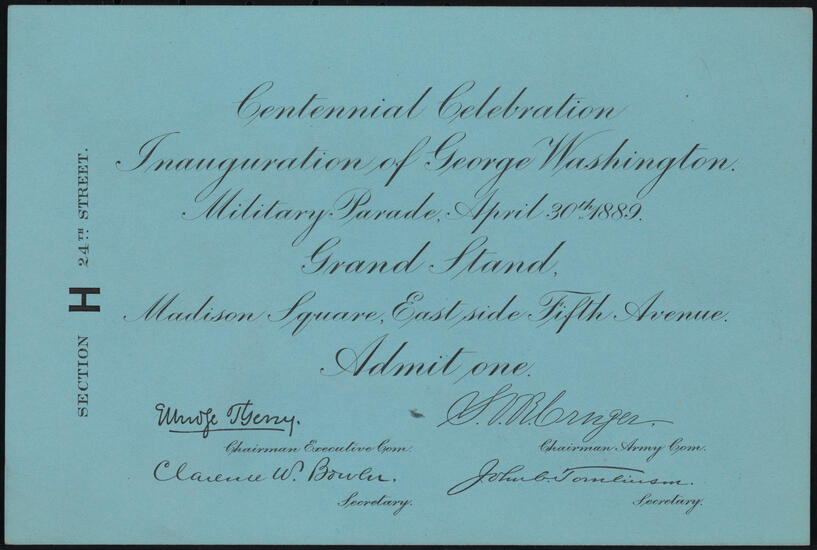 Centennial Celebration
Inauguration of George Washington.
Military Parade, April 30th 1889.
Grand Stand,
Madison Square, East side Fifth Avenue.
Admit one.
SECTION H 24TH STREET.
Elbridge T. Gerry.
S. V. R. Cruger.
Chairman Executive Com.
Chairman Army Com.
Clarence W. Bowen.
John C. Tomlinson.
Secretary.
Secretary.